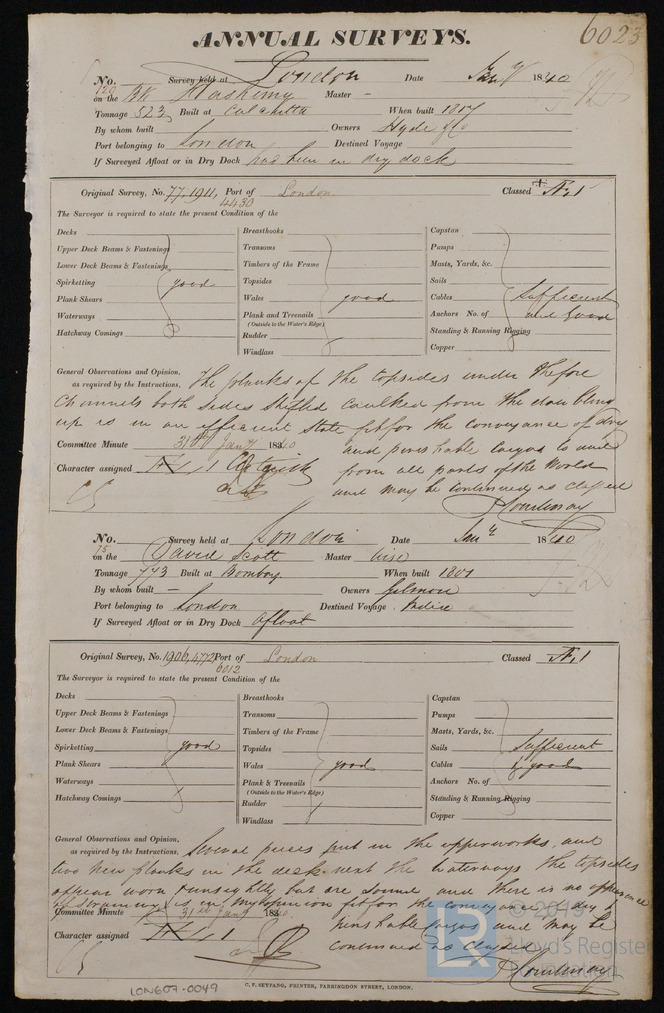 6023
ANNUAL SURVEYS.
No. 120 Survey held at London Date Jany 1840
on the Bk Hashemy Master –
Tonnage 523 Built at Calcutta When built 1817
By whom built Owners Hyde & Co
Port belonging to London Destined Voyage
If Surveyed Afloat or in Dry Dock has been in dry dock
Original Survey, No. 77, 1911, 4430 Port of London Classed Æ 1
The Surveyor is required to state the present Condition of the
Decks Breasthooks Capstan
Upper Deck Beams & Fastenings Transoms Pumps
Lower Deck Beams & Fastenings Timbers of the Frame Masts, Yards, &c.
Spirketting good Topsides Sails
Plank Shears Wales good Cables Sufficient
Waterways Plank and Treenails Anchors No. of and Good
(Outside to the Water's Edge)
Hatchway Comings Rudder Standing & Running Rigging
Windlass Copper
General Observations and Opinion, The planks of the topsides under the fore
as required by the Instructions,
Channels both sides shifted caulked from the doubling
up is in an efficient State fit for the conveyance of dry
Committee Minute 31st Jany 1840 and perishable cargos to and
Character assigned Æ 1 from all parts of the World
and may be continued as classed
Tomlinson
No. 75 Survey held at London Date Jany 1840
on the David Scott Master
Tonnage 773 Built at Bombay When built 1801
By whom built – Owners Gilmore
Port belonging to London Destined Voyage India
If Surveyed Afloat or in Dry Dock Afloat
Original Survey, No. 1906, 4772 6012 Port of London Classed Æ 1
The Surveyor is required to state the present Condition of the
Decks Breasthooks Capstan
Upper Deck Beams & Fastenings Transoms Pumps
Lower Deck Beams & Fastenings Timbers of the Frame Masts, Yards, &c.
Spirketting good Topsides Sails Sufficient
Plank Shears Wales good Cables & good
Waterways Plank & Treenails Anchors No. of
(Outside to the Water's Edge)
Hatchway Comings Rudder Standing & Running Rigging
Windlass Copper
General Observations and Opinion, Several pieces put in the upperworks, and
as required by the Instructions,
two new planks in the deck next the waterways the topsides
appear worn & unsightly but are sound and there is no appearance
of straining is in my opinion fit for the conveyance of dry &
Committee Minute 31st Jany 1840 perishable cargos and may be
Character assigned Æ 1 continued as classed
Tomlinson
© 2019
Lloyd's Register
Foundation
LR
LON607-0049
C. F. SEYFANG, PRINTER, FARRINGDON STREET, LONDON.